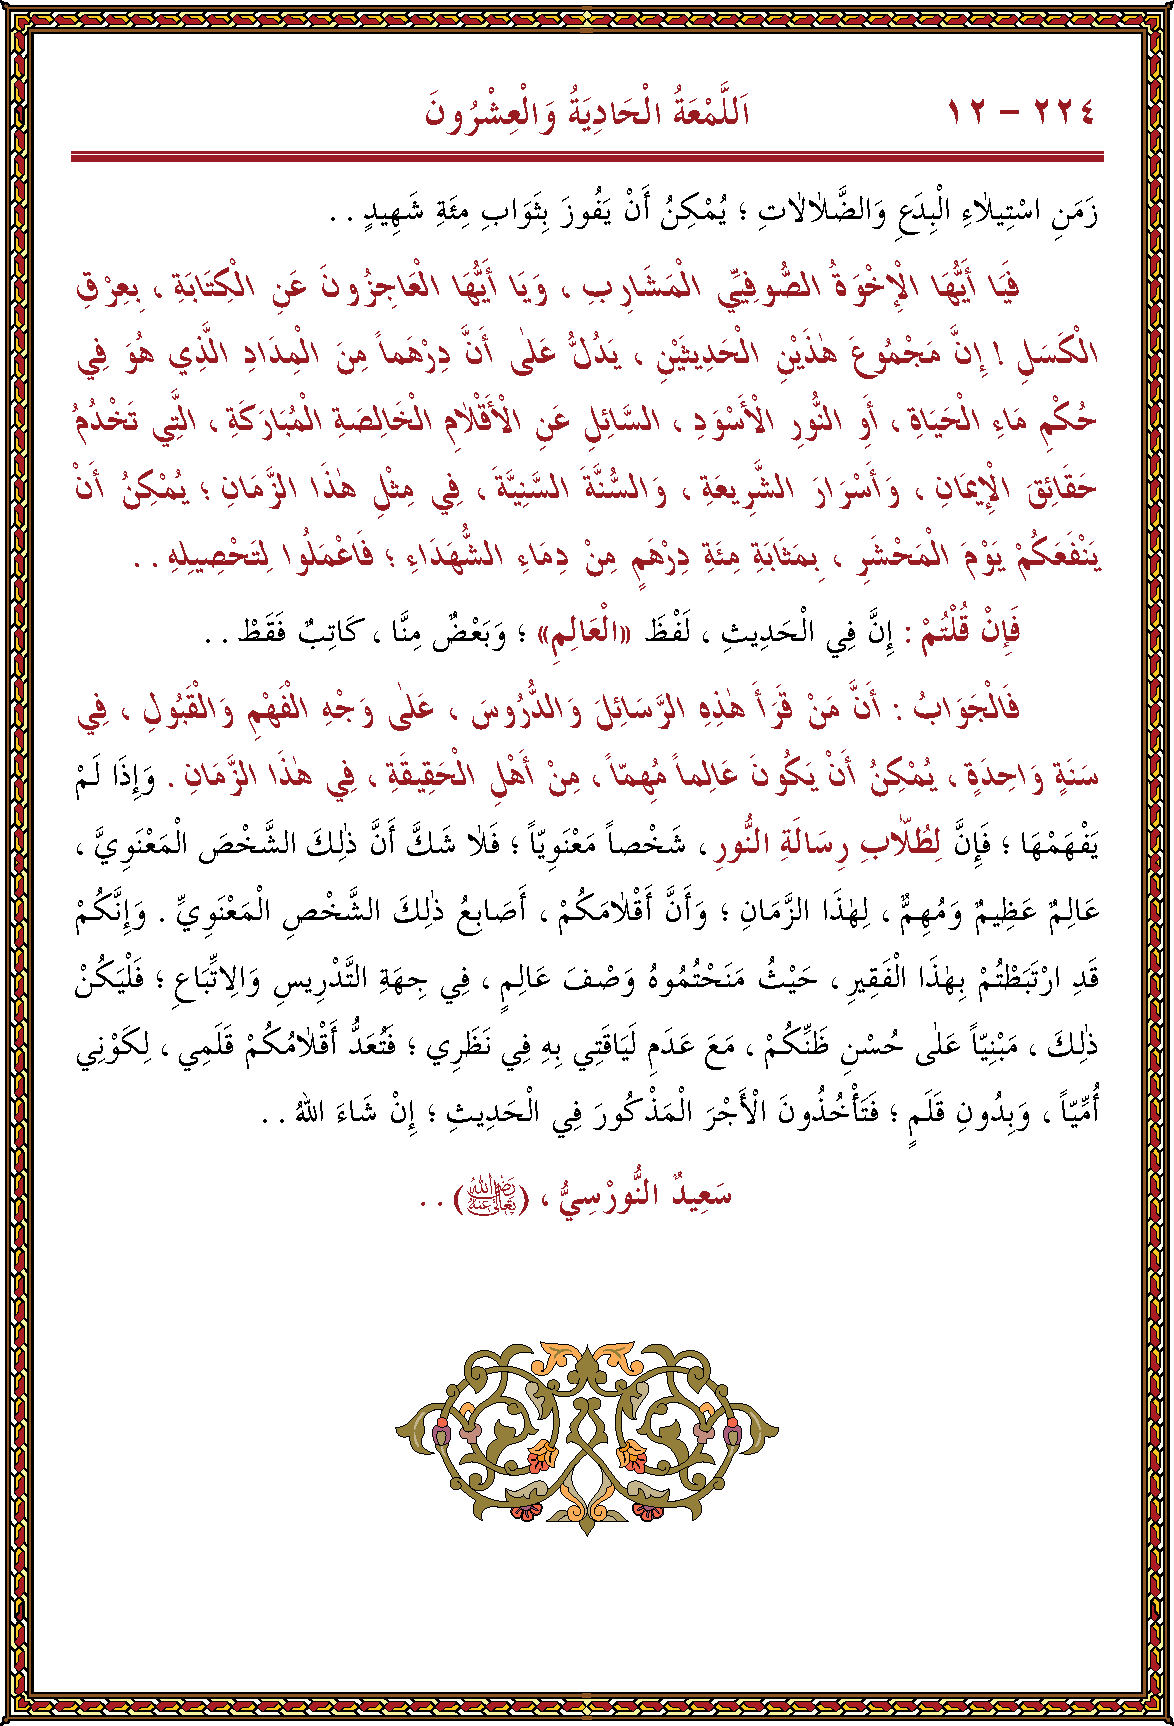 ٢٢٤ – ١٢
اَللَّمْعَةُ الْحَادِيَةُ وَالْعِشْرُونَ
زَمَنِ اسْتِيلَاءِ الْبِدَعِ وَالضَّلَالَاتِ ؛ يُمْكِنُ أَنْ يَفُوزَ بِثَوَابِ مِئَةِ شَهِيدٍ . .
فَيَا أَيُّهَا الْإِخْوَةُ الصُّوفِيِّي الْمَشَارِبِ ، وَيَا أَيُّهَا الْعَاجِزُونَ عَنِ الْكِتَابَةِ ، بِعِرْقِ
الْكَسَلِ ! إِنَّ مَجْمُوعَ هٰذَيْنِ الْحَدِيثَيْنِ ، يَدُلُّ عَلٰى أَنَّ دِرْهَماً مِنَ الْمِدَادِ الَّذِي هُوَ فِي
حُكْمِ مَاءِ الْحَيَاةِ ، أَوِ النُّورِ الْأَسْوَدِ ، السَّائِلِ عَنِ الْأَقْلَامِ الْخَالِصَةِ الْمُبَارَكَةِ ، الَّتِي تَخْدُمُ
حَقَائِقَ الْإِيمَانِ ، وَأَسْرَارَ الشَّرِيعَةِ ، وَالسُّنَّةَ السَّنِيَّةَ ، فِي مِثْلِ هٰذَا الزَّمَانِ ؛ يُمْكِنُ أَنْ
يَنْفَعَكُمْ يَوْمَ الْمَحْشَرِ ، بِمَثَابَةِ مِئَةِ دِرْهَمٍ مِنْ دِمَاءِ الشُّهَدَاءِ ؛ فَاعْمَلُوا لِتَحْصِيلِهِ . .
فَإِنْ قُلْتُمْ : إِنَّ فِي الْحَدِيثِ ، لَفْظَ «الْعَالِمِ» ؛ وَبَعْضٌ مِنَّا ، كَاتِبٌ فَقَطْ . .
فَالْجَوَابُ : أَنَّ مَنْ قَرَأَ هٰذِهِ الرَّسَائِلَ وَالدُّرُوسَ ، عَلٰى وَجْهِ الْفَهْمِ وَالْقَبُولِ ، فِي
سَنَةٍ وَاحِدَةٍ ، يُمْكِنُ أَنْ يَكُونَ عَالِماً مُهِمّاً ، مِنْ أَهْلِ الْحَقِيقَةِ ، فِي هٰذَا الزَّمَانِ . وَإِذَا لَمْ
يَفْهَمْهَا ؛ فَإِنَّ لِطُلَّابِ رِسَالَةِ النُّورِ ، شَخْصاً مَعْنَوِيّاً ؛ فَلَا شَكَّ أَنَّ ذٰلِكَ الشَّخْصَ الْمَعْنَوِيَّ ،
عَالِمٌ عَظِيمٌ وَمُهِمٌّ ، لِهٰذَا الزَّمَانِ ؛ وَأَنَّ أَقْلَامَكُمْ ، أَصَابِعُ ذٰلِكَ الشَّخْصِ الْمَعْنَوِيِّ . وَإِنَّكُمْ
قَدِ ارْتَبَطْتُمْ بِهٰذَا الْفَقِيرِ ، حَيْثُ مَنَحْتُمُوهُ وَصْفَ عَالِمٍ ، فِي جِهَةِ التَّدْرِيسِ وَالِاتِّبَاعِ ؛ فَلْيَكُنْ
ذٰلِكَ ، مَبْنِيّاً عَلٰى حُسْنِ ظَنِّكُمْ ، مَعَ عَدَمِ لَيَاقَتِي بِهِ فِي نَظَرِي ؛ فَتُعَدُّ أَقْلَامُكُمْ قَلَمِي ، لِكَوْنِي
أُمِّيّاً ، وَبِدُونِ قَلَمٍ ؛ فَتَأْخُذُونَ الْأَجْرَ الْمَذْكُورَ فِي الْحَدِيثِ ؛ إِنْ شَاءَ اللّٰهُ . .
سَعِيدٌ النُّورْسِيُّ ، (رَضِيَ اللّٰهُ تَعَالٰى عَنْهُ) . .